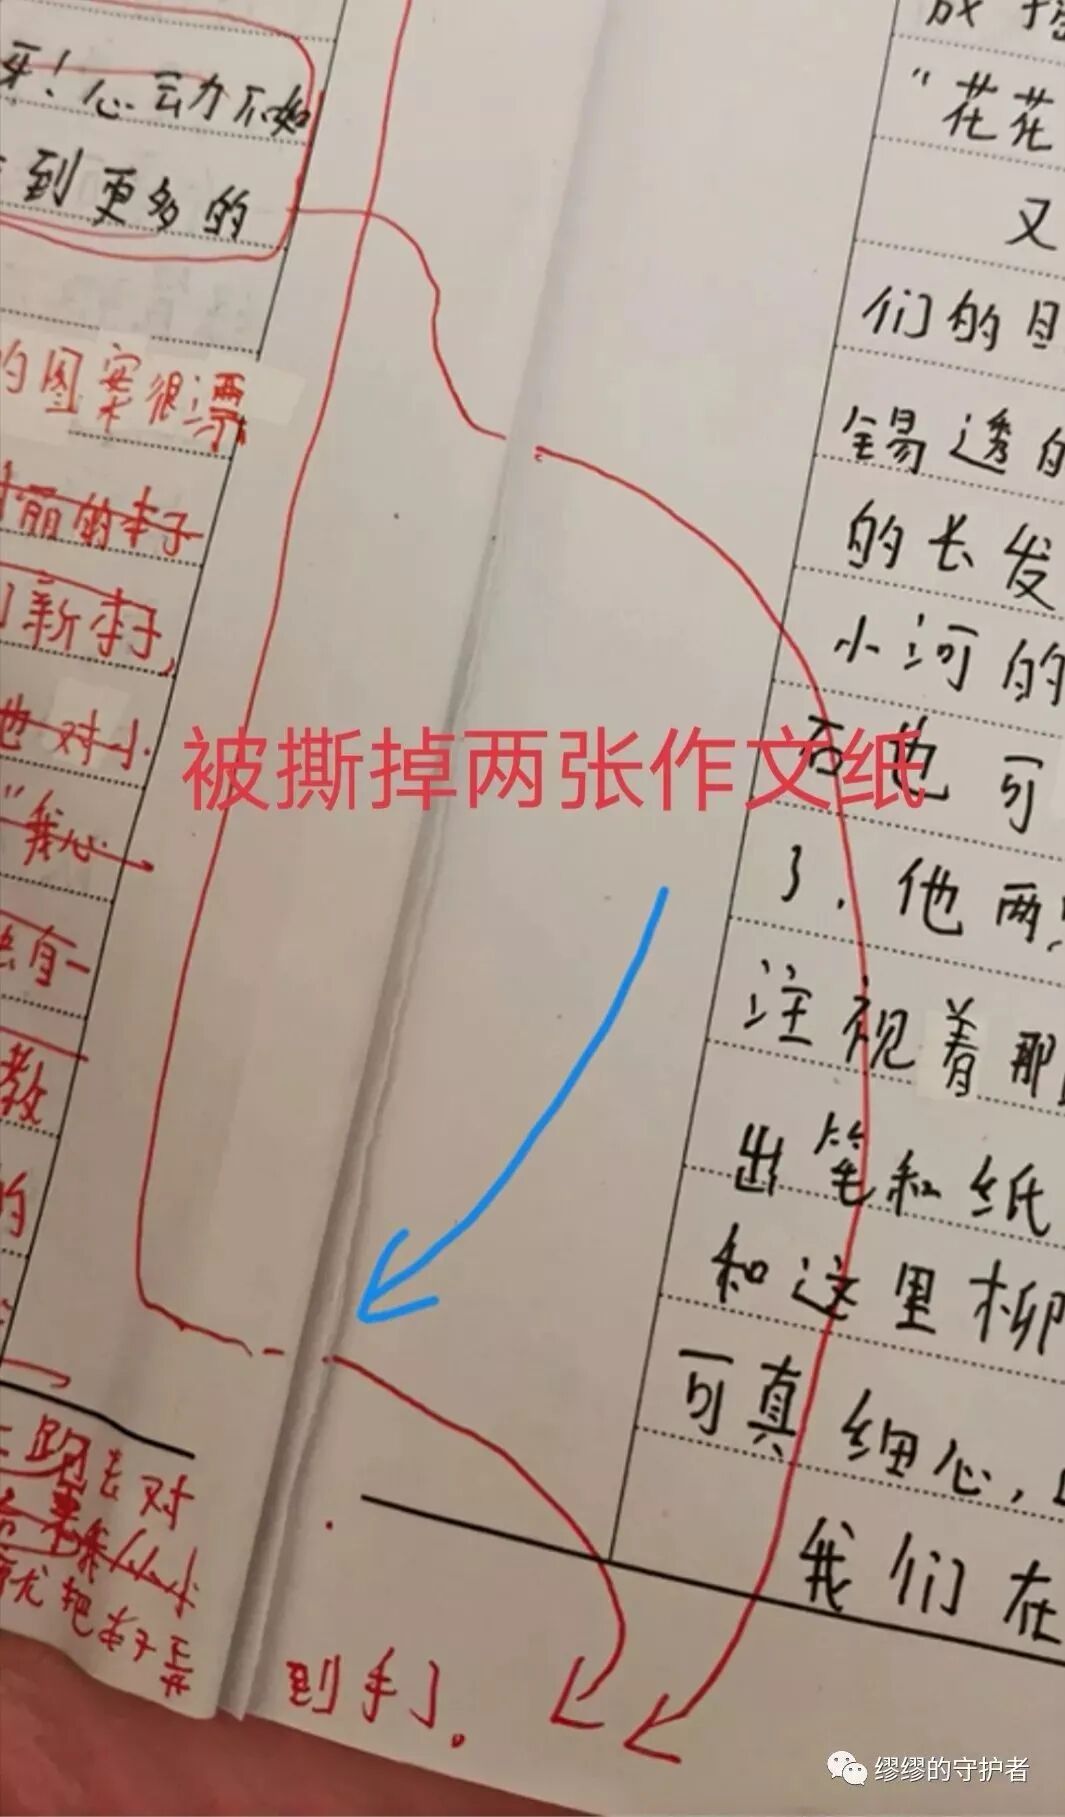 牙！心动不如
到更多的
的图案很漂
丽的本子
新本子，
他对小
“我心
有一
教
的
跑去对
从小
就把本子弄
到手了。
被撕掉两张作文纸
“花花
又
们的目
锡透的
的长发
小河的
石也可
了，他两
注视着那
出笔和纸
和这里柳
可真细心，
我们在
缪缪的守护者